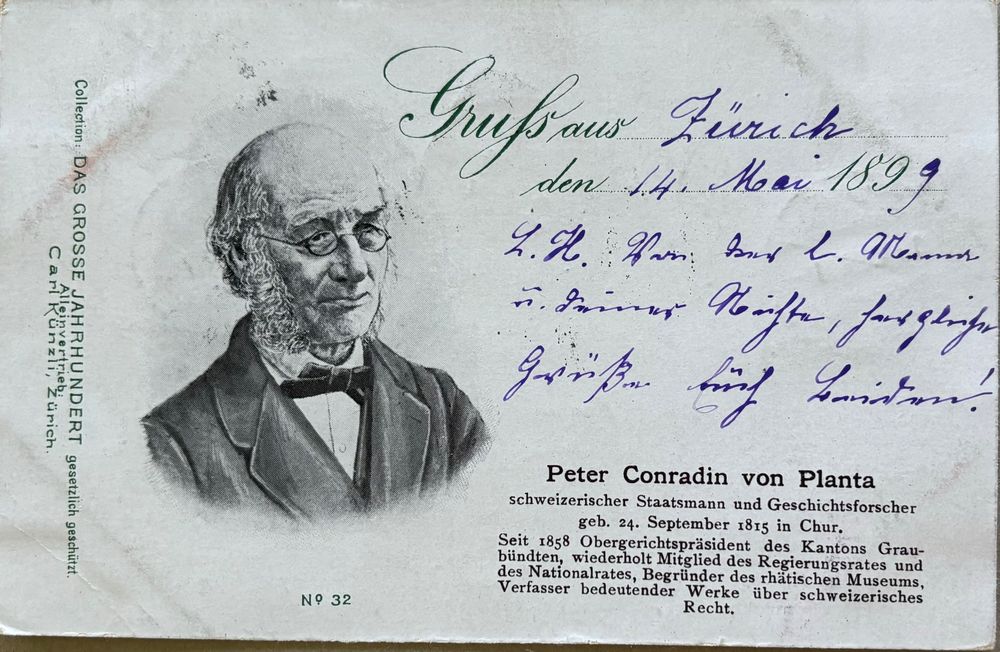 Gruss aus Zürich
den 14. Mai 1899
L. H. Von der l. Mama
u. deiner Nichte, herzliche
Grüße Euch Beiden!
Peter Conradin von Planta
schweizerischer Staatsmann und Geschichtsforscher
geb. 24. September 1815 in Chur.
Seit 1858 Obergerichtspräsident des Kantons Grau-
bündten, wiederholt Mitglied des Regierungsrates und
des Nationalrates, Begründer des rhätischen Museums,
Verfasser bedeutender Werke über schweizerisches
Recht.
Collection: DAS GROSSE JAHRHUNDERT gesetzlich geschützt.
Alleinvertrieb:
Carl Künzli, Zürich.
Nº 32